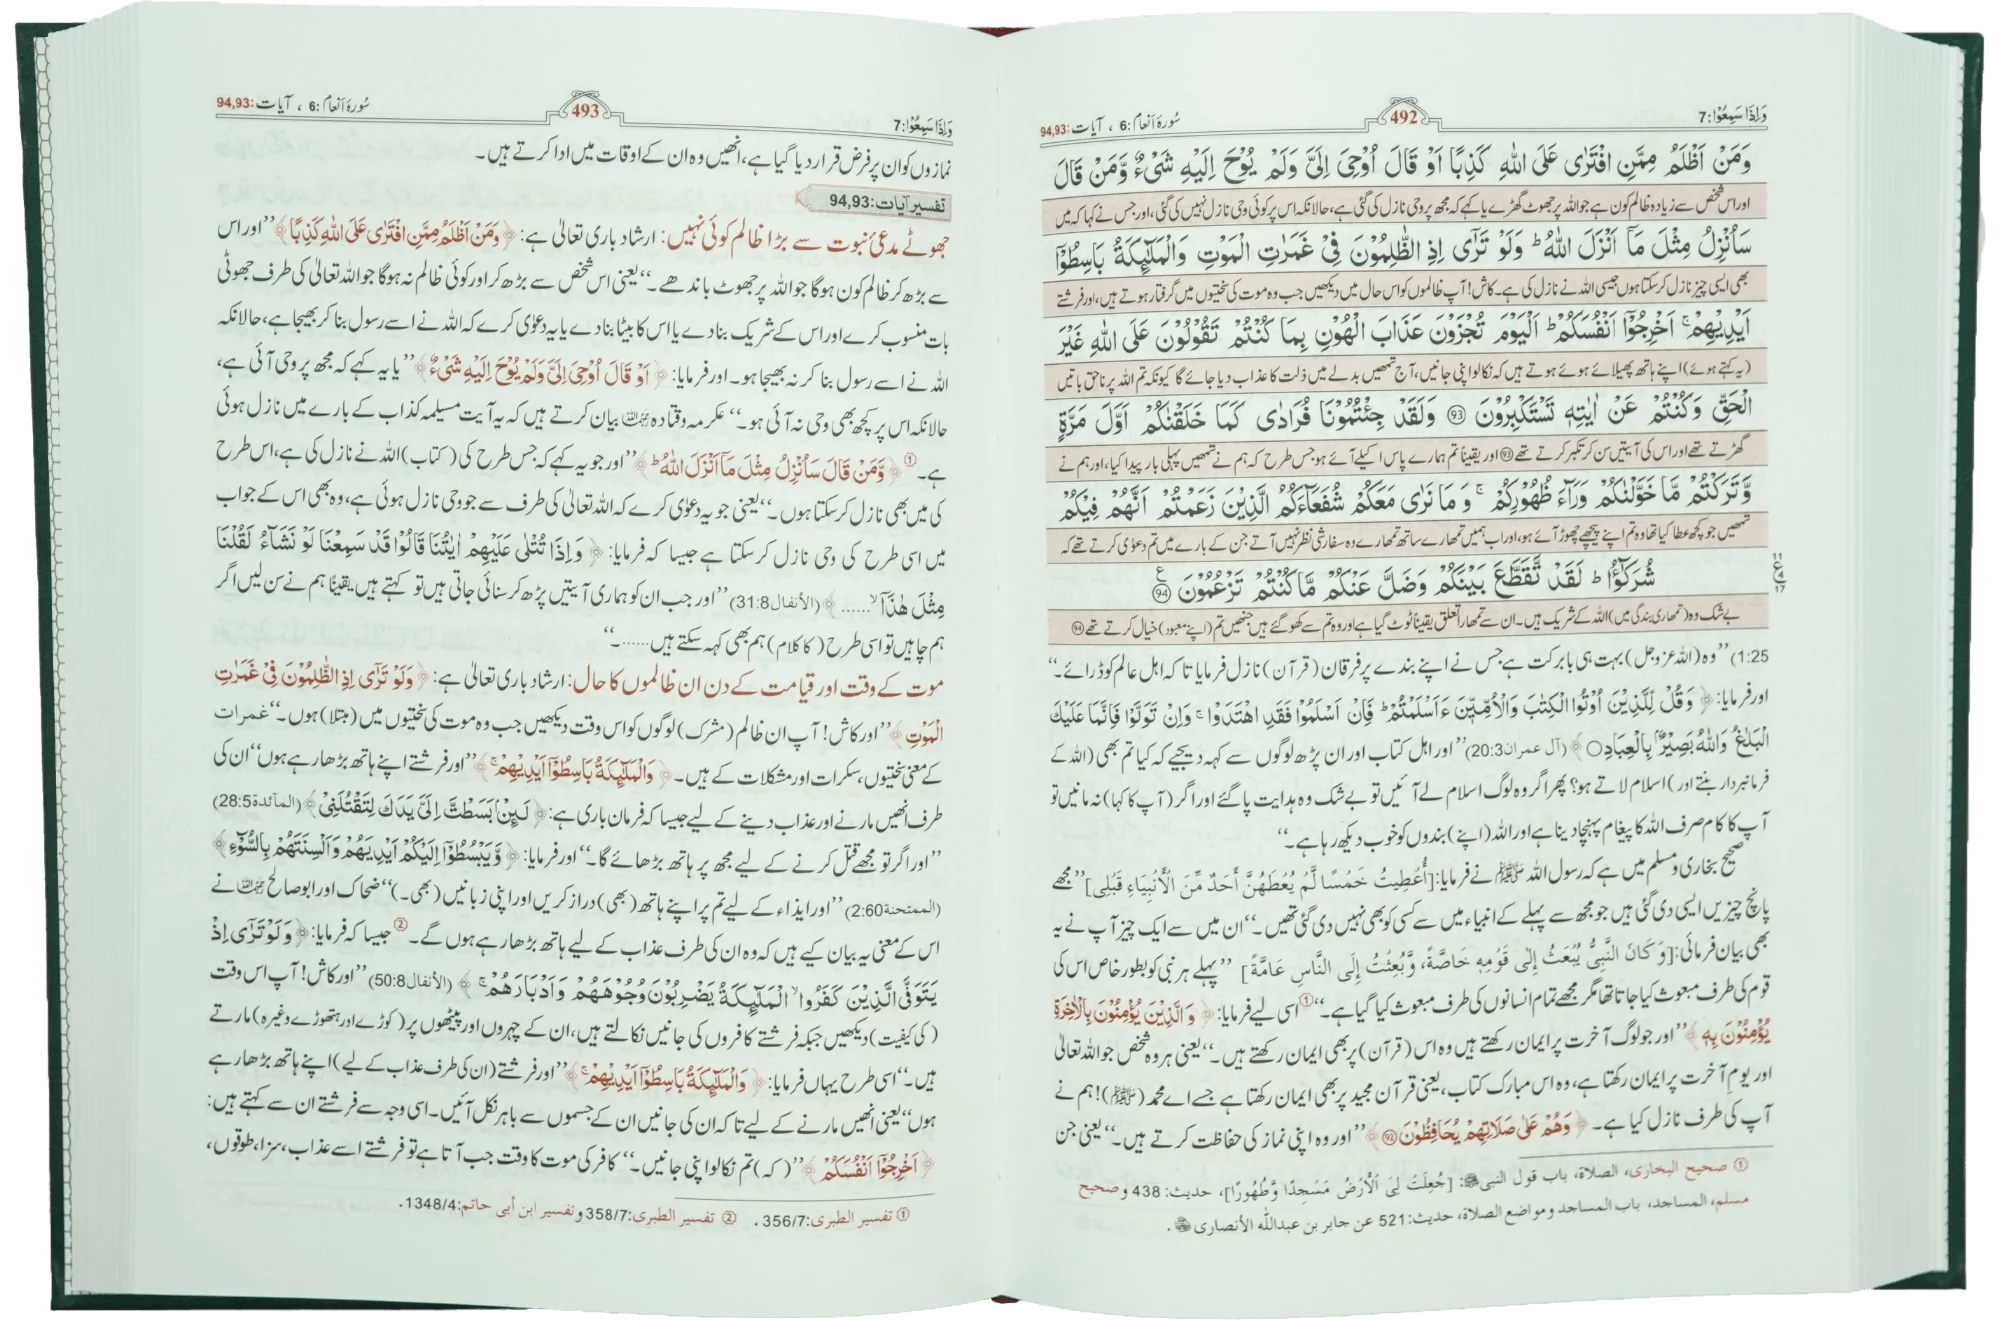 وَاِذَا سَمِعُوْا:7
492
سُورۂ اَنعام :6 ، آیات:94,93
وَمَنْ اَظْلَمُ مِمَّنِ افْتَرٰى عَلَى اللّٰهِ كَذِبًا اَوْ قَالَ اُوْحِىَ اِلَىَّ وَلَمْ يُوْحَ اِلَيْهِ شَىْءٌ وَّمَنْ قَالَ
اور اس شخص سے زیادہ ظالم کون ہے جو اللہ پر جھوٹ گھڑے یا کہے کہ مجھ پر وحی نازل کی گئی ہے، حالانکہ اس پر کوئی وحی نازل نہیں کی گئی، اور جس نے کہا کہ میں
سَاُنْزِلُ مِثْلَ مَآ اَنْزَلَ اللّٰهُ ؕ وَلَوْ تَرٰٓى اِذِ الظّٰلِمُوْنَ فِىْ غَمَرٰتِ الْمَوْتِ وَالْمَلٰٓئِكَةُ بَاسِطُوْٓا
بھی ایسی چیز نازل کرسکتا ہوں جیسی اللہ نے نازل کی ہے۔ کاش! آپ ظالموں کو اس حال میں دیکھیں جب وہ موت کی سختیوں میں گرفتار ہوتے ہیں، اور فرشتے
اَيْدِيْهِمْ ۚ اَخْرِجُوْٓا اَنْفُسَكُمْ ؕ اَلْيَوْمَ تُجْزَوْنَ عَذَابَ الْهُوْنِ بِمَا كُنْتُمْ تَقُوْلُوْنَ عَلَى اللّٰهِ غَيْرَ
(یہ کہتے ہوئے) اپنے ہاتھ پھیلائے ہوئے ہوتے ہیں کہ نکالو اپنی جانیں، آج تمھیں بدلے میں ذلت کا عذاب دیا جائے گا کیونکہ تم اللہ پر ناحق باتیں
الْحَقِّ وَكُنْتُمْ عَنْ اٰيٰتِهٖ تَسْتَكْبِرُوْنَ ﴿93﴾ وَلَقَدْ جِئْتُمُوْنَا فُرَادٰى كَمَا خَلَقْنٰكُمْ اَوَّلَ مَرَّةٍ
گھڑتے تھے اور اس کی آیتیں سن کر تکبر کرتے تھے ﴿93﴾ اور یقیناً تم ہمارے پاس اکیلے آئے ہو جس طرح کہ ہم نے تمھیں پہلی بار پیدا کیا، اور ہم نے
وَّتَرَكْتُمْ مَّا خَوَّلْنٰكُمْ وَرَآءَ ظُهُوْرِكُمْ ۚ وَمَا نَرٰى مَعَكُمْ شُفَعَآءَكُمُ الَّذِيْنَ زَعَمْتُمْ اَنَّهُمْ فِيْكُمْ
تمھیں جو کچھ عطا کیا تھا وہ تم اپنے پیچھے چھوڑ آئے ہو، اور اب ہمیں تمھارے ساتھ تمھارے وہ سفارشی نظر نہیں آتے جن کے بارے میں تم دعویٰ کرتے تھے کہ
شُرَكٰٓؤُا ؕ لَقَدْ تَّقَطَّعَ بَيْنَكُمْ وَضَلَّ عَنْكُمْ مَّا كُنْتُمْ تَزْعُمُوْنَ ﴿94﴾
بے شک وہ (تمھاری بندگی میں) اللہ کے شریک ہیں۔ ان سے تمھارا تعلق یقیناً ٹوٹ گیا ہے اور وہ تم سے کھو گئے ہیں جنھیں تم (اپنے معبود) خیال کرتے تھے ﴿94﴾
(1:25) ’’وہ (اللہ عزوجل) بہت ہی بابرکت ہے جس نے اپنے بندے پر فرقان (قرآن) نازل فرمایا تاکہ اہل عالم کو ڈرائے۔‘‘
اور فرمایا: ﴿ وَقُلْ لِّلَّذِيْنَ اُوْتُوا الْكِتٰبَ وَالْاُمِّيّٖنَ ءَاَسْلَمْتُمْ ؕ فَاِنْ اَسْلَمُوْا فَقَدِ اهْتَدَوْا ۚ وَاِنْ تَوَلَّوْا فَاِنَّمَا عَلَيْكَ
الْبَلٰغُ ؕ وَاللّٰهُ بَصِيْرٌۢ بِالْعِبَادِ ○ ﴾ (آل عمران 20:3) ’’اور اہل کتاب اور ان پڑھ لوگوں سے کہہ دیجیے کہ کیا تم بھی (اللہ کے
فرمانبردار بنتے اور) اسلام لاتے ہو؟ پھر اگر وہ لوگ اسلام لے آئیں تو بے شک وہ ہدایت پاگئے اور اگر (آپ کا کہا) نہ مانیں تو
آپ کا کام صرف اللہ کا پیغام پہنچا دینا ہے اور اللہ (اپنے) بندوں کو خوب دیکھ رہا ہے۔‘‘
صحیح بخاری ومسلم میں ہے کہ رسول اللہ ﷺ نے فرمایا: [أُعْطِيتُ خَمْسًا لَّمْ يُعْطَهُنَّ أَحَدٌ مِّنَ الْأَنْبِيَاءِ قَبْلِى] ’’مجھے
پانچ چیزیں ایسی دی گئی ہیں جو مجھ سے پہلے کے انبیاء میں سے کسی کو بھی نہیں دی گئی تھیں۔‘‘ ان میں سے ایک چیز آپ نے یہ
بھی بیان فرمائی: [وَكَانَ النَّبِىُّ يُبْعَثُ إِلٰى قَوْمِهٖ خَاصَّةً، وَّبُعِثْتُ إِلَى النَّاسِ عَامَّةً] ’’پہلے ہر نبی کو بطور خاص اس کی
قوم کی طرف مبعوث کیا جاتا تھا مگر مجھے تمام انسانوں کی طرف مبعوث کیا گیا ہے۔‘‘① اسی لیے فرمایا: ﴿ وَالَّذِيْنَ يُؤْمِنُوْنَ بِالْاٰخِرَةِ
يُؤْمِنُوْنَ بِهٖ ﴾ ’’اور جو لوگ آخرت پر ایمان رکھتے ہیں وہ اس (قرآن) پر بھی ایمان رکھتے ہیں۔‘‘ یعنی ہر وہ شخص جو اللہ تعالیٰ
اور یوم آخرت پر ایمان رکھتا ہے، وہ اس مبارک کتاب، یعنی قرآن مجید پر بھی ایمان رکھتا ہے جسے اے محمد (ﷺ)! ہم نے
آپ کی طرف نازل کیا ہے۔ ﴿ وَهُمْ عَلٰى صَلَاتِهِمْ يُحَافِظُوْنَ ﴿92﴾ ﴾ ’’اور وہ اپنی نماز کی حفاظت کرتے ہیں۔‘‘ یعنی جن
① صحیح البخاری، الصلاة، باب قول النبی ﷺ: [جُعِلَتْ لِىَ الْأَرْضُ مَسْجِدًا وَّطَهُورًا]، حدیث: 438 و صحیح
مسلم، المساجد، باب المساجد ومواضع الصلاة، حدیث: 521 عن جابر بن عبداللّٰه الأنصاری ؓ .
وَاِذَا سَمِعُوْا:7
493
سُورۂ اَنعام :6 ، آیات:94,93
نمازوں کو ان پر فرض قرار دیا گیا ہے، انھیں وہ ان کے اوقات میں ادا کرتے ہیں۔
تفسیر آیات:94,93
جھوٹے مدعیٔ نبوت سے بڑا ظالم کوئی نہیں: ارشاد باری تعالیٰ ہے: ﴿ وَمَنْ اَظْلَمُ مِمَّنِ افْتَرٰى عَلَى اللّٰهِ كَذِبًا ﴾ ’’اور اس
سے بڑھ کر ظالم کون ہوگا جو اللہ پر جھوٹ باندھے۔‘‘ یعنی اس شخص سے بڑھ کر اور کوئی ظالم نہ ہوگا جو اللہ تعالیٰ کی طرف جھوٹی
بات منسوب کرے اور اس کے شریک بنا دے یا اس کا بیٹا بنا دے یا یہ دعویٰ کرے کہ اللہ نے اسے رسول بنا کر بھیجا ہے، حالانکہ
اللہ نے اسے رسول بنا کر نہ بھیجا ہو۔ اور فرمایا: ﴿ اَوْ قَالَ اُوْحِىَ اِلَىَّ وَلَمْ يُوْحَ اِلَيْهِ شَىْءٌ ﴾ ’’یا یہ کہے کہ مجھ پر وحی آئی ہے،
حالانکہ اس پر کچھ بھی وحی نہ آئی ہو۔‘‘ عکرمہ و قتادہ بیان کرتے ہیں کہ یہ آیت مسیلمہ کذاب کے بارے میں نازل ہوئی
ہے۔① ﴿ وَّمَنْ قَالَ سَاُنْزِلُ مِثْلَ مَآ اَنْزَلَ اللّٰهُ ؕ ﴾ ’’اور جو یہ کہے کہ جس طرح کی (کتاب) اللہ نے نازل کی ہے، اس طرح
کی میں بھی نازل کرسکتا ہوں۔‘‘ یعنی جو یہ دعویٰ کرے کہ اللہ تعالیٰ کی طرف سے جو وحی نازل ہوئی ہے، وہ بھی اس کے جواب
میں اسی طرح کی وحی نازل کرسکتا ہے جیسا کہ فرمایا: ﴿ وَاِذَا تُتْلٰى عَلَيْهِمْ اٰيٰتُنَا قَالُوْا قَدْ سَمِعْنَا لَوْ نَشَآءُ لَقُلْنَا
مِثْلَ هٰذَآ ۙ ...... ﴾ (الأنفال 31:8) ’’اور جب ان کو ہماری آیتیں پڑھ کر سنائی جاتی ہیں تو کہتے ہیں یقیناً ہم نے سن لیں اگر
ہم چاہیں تو اسی طرح (کا کلام) ہم بھی کہہ سکتے ہیں......۔‘‘
موت کے وقت اور قیامت کے دن ان ظالموں کا حال: ارشاد باری تعالیٰ ہے: ﴿ وَلَوْ تَرٰٓى اِذِ الظّٰلِمُوْنَ فِىْ غَمَرٰتِ
الْمَوْتِ ﴾ ’’اور کاش! آپ ان ظالم (مشرک) لوگوں کو اس وقت دیکھیں جب وہ موت کی سختیوں میں (مبتلا) ہوں۔‘‘ غمرات
کے معنی سختیوں، سکرات اور مشکلات کے ہیں۔ ﴿ وَالْمَلٰٓئِكَةُ بَاسِطُوْٓا اَيْدِيْهِمْ ۚ ﴾ ’’اور فرشتے اپنے ہاتھ بڑھا رہے ہوں‘‘ ان کی
طرف انھیں مارنے اور عذاب دینے کے لیے جیسا کہ فرمان باری ہے: ﴿ لَىِٕنْۢ بَسَطْتَّ اِلَىَّ يَدَكَ لِتَقْتُلَنِىْ ﴾ (المآئدة 28:5)
’’اور اگر تو مجھے قتل کرنے کے لیے مجھ پر ہاتھ بڑھائے گا۔‘‘ اور فرمایا: ﴿ وَّيَبْسُطُوْٓا اِلَيْكُمْ اَيْدِيَهُمْ وَاَلْسِنَتَهُمْ بِالسُّوْٓءِ ﴾
(الممتحنة 2:60) ’’اور ایذاء کے لیے تم پر اپنے ہاتھ (بھی) دراز کریں اور اپنی زبانیں (بھی۔)‘‘ ضحاک اور ابوصالح نے
اس کے معنی یہ بیان کیے ہیں کہ وہ ان کی طرف عذاب کے لیے ہاتھ بڑھا رہے ہوں گے۔② جیسا کہ فرمایا: ﴿ وَلَوْ تَرٰٓى اِذْ
يَتَوَفَّى الَّذِيْنَ كَفَرُوا ۙ الْمَلٰٓئِكَةُ يَضْرِبُوْنَ وُجُوْهَهُمْ وَاَدْبَارَهُمْ ۚ ﴾ (الأنفال 50:8) ’’اور کاش! آپ اس وقت
(کی کیفیت) دیکھیں جبکہ فرشتے کافروں کی جانیں نکالتے ہیں، ان کے چہروں اور پیٹھوں پر (کوڑے اور ہتھوڑے وغیرہ) مارتے
ہیں۔‘‘ اسی طرح یہاں فرمایا: ﴿ وَالْمَلٰٓئِكَةُ بَاسِطُوْٓا اَيْدِيْهِمْ ۚ ﴾ ’’اور فرشتے (ان کی طرف عذاب کے لیے) اپنے ہاتھ بڑھا رہے
ہوں‘‘ یعنی انھیں مارنے کے لیے تاکہ ان کی جانیں ان کے جسموں سے باہر نکل آئیں۔ اسی وجہ سے فرشتے ان سے کہتے ہیں:
﴿ اَخْرِجُوْٓا اَنْفُسَكُمْ ﴾ ’’(کہ) تم نکالو اپنی جانیں۔‘‘ کافر کی موت کا وقت جب آتا ہے تو فرشتے اسے عذاب، سزا، طوقوں،
① تفسیر الطبری:356/7 . ② تفسیر الطبری:358/7 و تفسیر ابن أبی حاتم:1348/4.